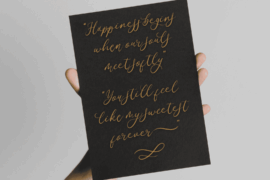 "Happiness begins
when our souls
meet softly"
"You still feel
like my sweetest
forever